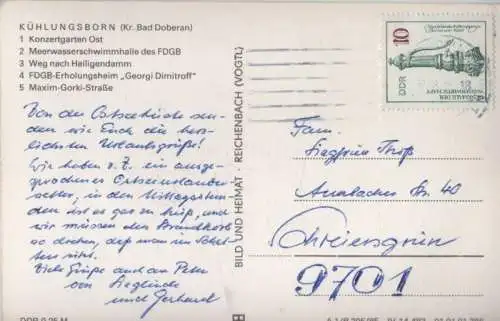 KÜHLUNGSBORN (Kr. Bad Doberan)
1 Konzertgarten Ost
2 Meerwasserschwimmhalle des FDGB
3 Weg nach Heiligendamm
4 FDGB-Erholungsheim „Georgi Dimitroff"
5 Maxim-Gorki-Straße
Von der Ostseeküste sen-
den wir Euch die herz-
lichsten Urlaubsgrüße!
Wir haben z. Z. ein ausge-
sprochenes Ostseeurlaubs-
wetter, in den Mittagsstun-
den ist es gar zu heiß, und
wir müssen den Strandkorb
so drehen, daß man im Schat-
ten sitzt.
Viele Grüße auch an Peter
von Sieglinde
und Gerhard
BILD UND HEIMAT · REICHENBACH (VOGTL)
10
DDR
Fam.
Siegfried
Auerbacher Str. 40
Schreiersgrün
9701
DDR 0,25 M